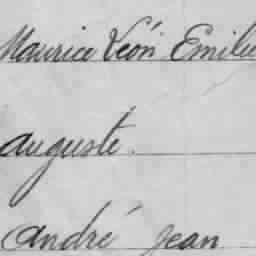 Maurice Léon Emile
Auguste.
André Jean